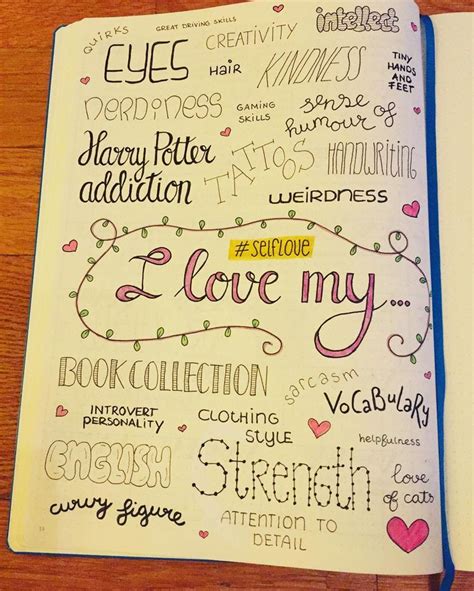 QUIRKS
GREAT DRIVING SKILLS
CREATIVITY
intellect
EYES
HAIR
KINDNESS
TINY
HANDS
AND
FEET
NERDINESS
GAMING
SKILLS
sense of
humour
Harry Potter
addiction
TATTOOS
HANDWRITING
WEIRDNESS
#SELFLOVE
I love my...
BOOK COLLECTION
sarcasm
VoCaBuLaRy
INTROVERT
PERSONALITY
CLOTHING
STYLE
helpfulness
ENGLISH
Strength
love
of cats
curvy figure
ATTENTION TO
DETAIL